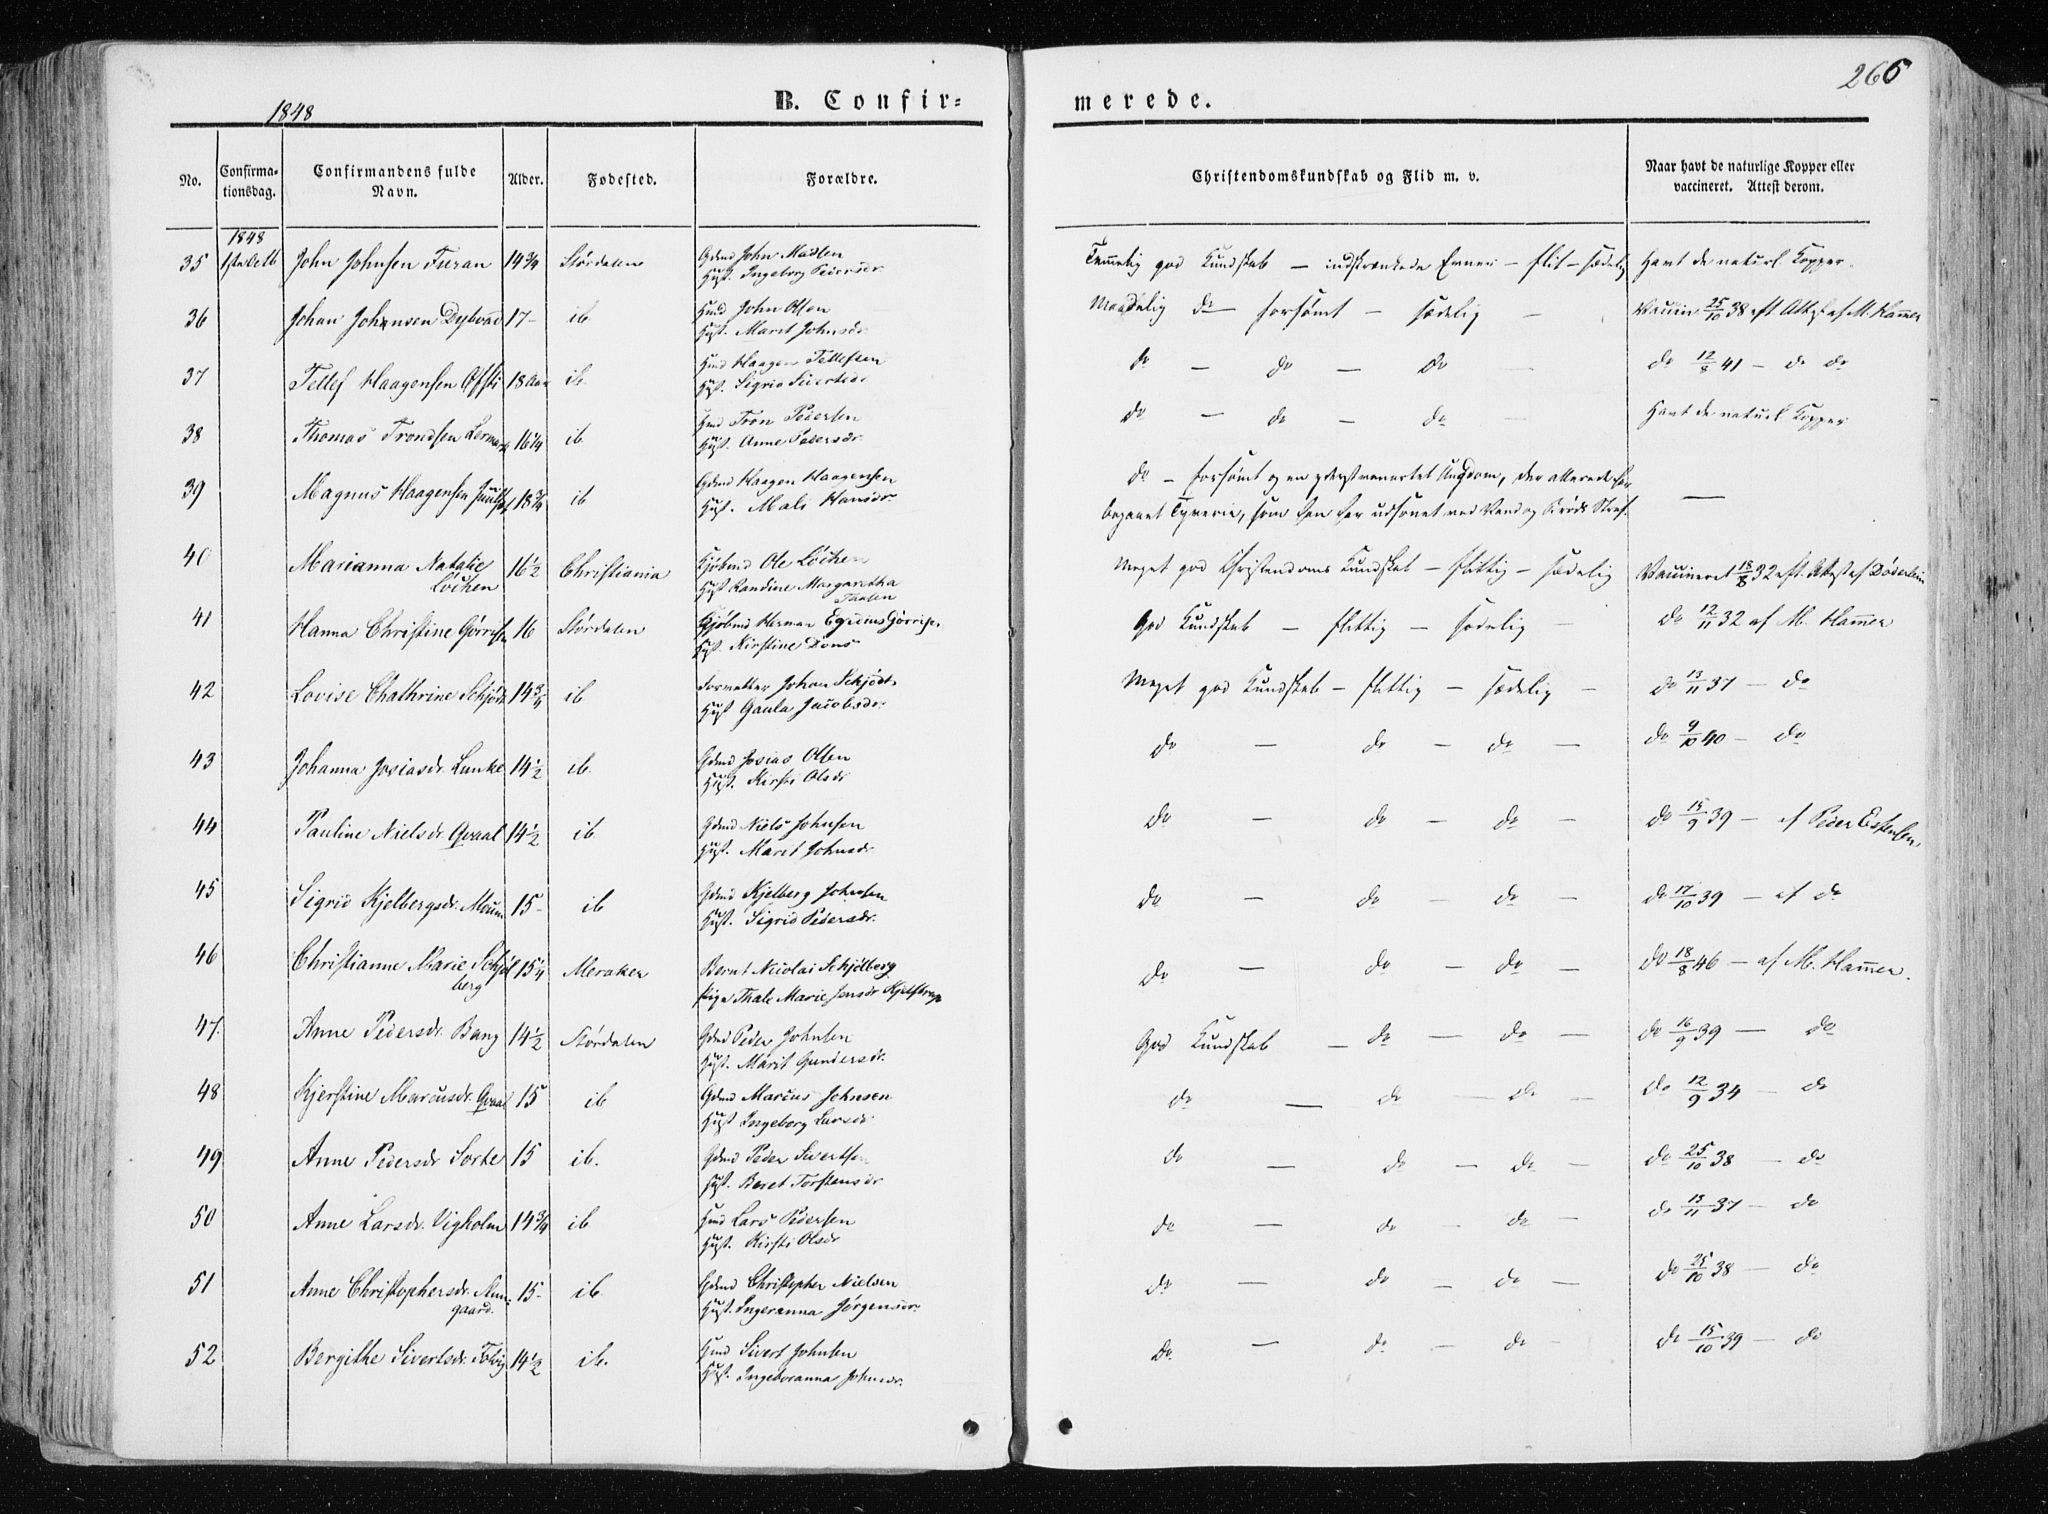 1848
B. Confir=
merede.
266
No.
Confirma-
tionsdag.
Confirmandens fulde
Navn.
Alder.
Fødested.
Forældre.
Christendomskundskab og Flid m. v.
Naar havt de naturlige Kopper eller
vaccineret. Attest derom.
1848
35 1ste Octb John Johnsen Turan 14 3/4 Størdalen Gdmd John Madsen
Hust. Ingeborg Pedersdr.
Temmelig god Kundskab — indskrænkede Evner — flit — sædelig Havt de naturl. Kopper.
36 Johan Johansen Dybvad 17 - ib Hmd John Olsen
Hust. Marit Johnsdr
Maadelig do — forsømt — sædelig — Vaccin 25/10 38 eft Attest af M. Hammer
37 Tellef Haagensen Ofsti 18 Aar ib. Hmd Haagen Tellefsen
Hust. Sigrid Sivertsdr
do — do — do do 12/8 41 — do do
38 Thomas Trondsen 16 1/4 ib Hmd Tron Pedersen
Hust. Anne Pedersdr.
do — do — do Havt de naturl. Kopper
39 Magnus Haagensen 18 3/4 ib Gdmd Haagen Haagensen
Hust. Mali Hansdr
do — forsømt og en Ungdom, der allerede har
begaaet Tyverie, som han har udsonet ved Vand og Brøds Straf. —
40 Marianna Natalie
Løchen 16 1/2 Christiania Kjøbmd Ole Løchen
Hust Randine Margaretha
Meget god Christendoms Kundskab — flittig — sædelig Vaccineret 18/8 32 eft. Attest af Døderlein
41 Hanna Christine Gørrisen 16 Størdalen Kjøbmd Herman Egidius Gørrisen
Hust. Kirstine Dons
God Kundskab — flittig — sædelig — do 12/11 32 af M. Hammer
42 Lovise Chathrine Schjødt 14 3/4 ib Johan Schjødt
Hust Gaula Jacobsdr.
Meget god Kundskab — flittig — sædelig — do 13/11 37 — do
43 Johanna Josiasdr. Lunke 14 1/2 ib. Gdmd Josias Olsen
Hust. Kirsti Olsdr
do — do — do — do 9/10 40 — do
44 Pauline Nielsdr. Qvaal 14 1/2 ib Gdmd Niels Johnsen
Hust. Marit Johnsdr.
do — do — do — do 15/9 39 — af Peder Estensen
45 Sigrid Kjelbergsdr. Moum 15 - ib Gdmd Kjelberg Johnsen
Hust. Sigrid Pedersdr.
do — do — do — do 17/10 39 — af do
46 Christianne Marie Schjøl
berg 15 1/4 Meraker Bernt Nicolai Schjølberg
Pige Thale Marie Jensdr Kjelstrup
do — do — do — do 18/8 46 — af M. Hammer.
47. Anne Pedersdr. Bang 14 1/2 Størdalen Gdmd Peder Johnsen
Hust. Marit Gundersdr.
God Kundskab — do — do — do 16/9 39 — do
48 Kjerstine Marcusdr. Qvaal 15 ib Gdmd Marcus Johnsen
Hust Ingeborg Larsdr
do — do — do — do 12/9 34 — do
49 Anne Pedersdr Sorte 15 ib. Gdmd Peder Sivertsen
Hust. Beret Torstensdr
do — do — do — do 25/10 38 — do
50 Anne Larsdr. Vigholm 14 3/4 ib Hmd Lars Pedersen
Hust. Kirsti Olsdr
do — do — do — do 13/11 37 — do
51 Anne Christophersdr.
gaard. 15 - ib Gdmd Christopher Nielsen
Hust. Ingeranna Jørgensdr
do — do — do — do 25/10 38 — do
52 Bergithe Sivertsdr. 14 1/2 ib. Hmd Sivert Johnsen
Hust. Ingeboranna Johnsdr.
do — do — do — do 15/10 39 — do